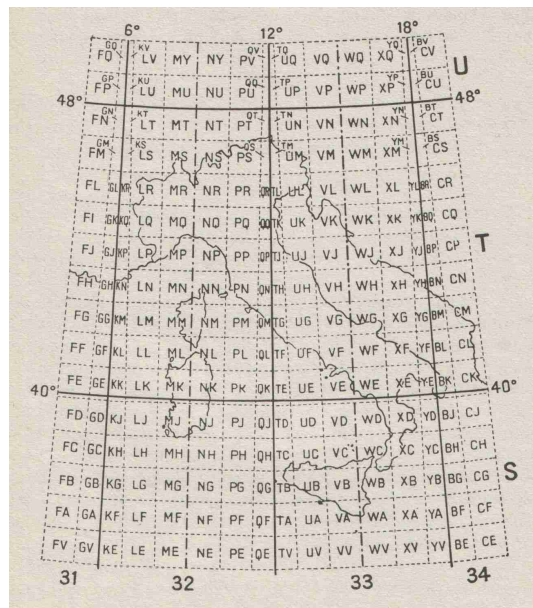 6° 12° 18°
GQ KV QV TQ YQ BV
FQ LV MY NY PV UQ VQ WQ XQ CV U
GP KU QU TP YP BU
FP LU MU NU PU UP VP WP XP CU
48° 48°
GN KT QT TN YN BT
FN LT MT NT PT UN VN WN XN CT
GM KS QS TM YM BS
FM LS MS NS PS UM VM WM XM CS
FL GL KR LR MR NR PR QR TL UL VL WL XL YL BR CR
FI GK KQ LQ MQ NQ PQ QQ TK UK VK WK XK YK BQ CQ
FJ GJ KP LP MP NP PP QP TJ UJ VJ WJ XJ YJ BP CP T
FH GH KN LN MN NN PN QN TH UH VH WH XH YH BN CN
FG GG KM LM MM NM PM QM TG UG VG WG XG YG BM CM
FF GF KL LL ML NL PL QL TF UF VF WF XF YF BL CL
FE GE KK LK MK NK PK QK TE UE VE WE XE YE BK CK
40° 40°
FD GD KJ LJ MJ NJ PJ QJ TD UD VD WD XD YD BJ CJ
FC GC KH LH MH NH PH QH TC UC VC WC XC YC BH CH
FB GB KG LG MG NG PG QG TB UB VB WB XB YB BG CG S
FA GA KF LF MF NF PF QF TA UA VA WA XA YA BF CF
FV GV KE LE ME NE PE QE TV UV VV WV XV YV BE CE
31 32 33 34